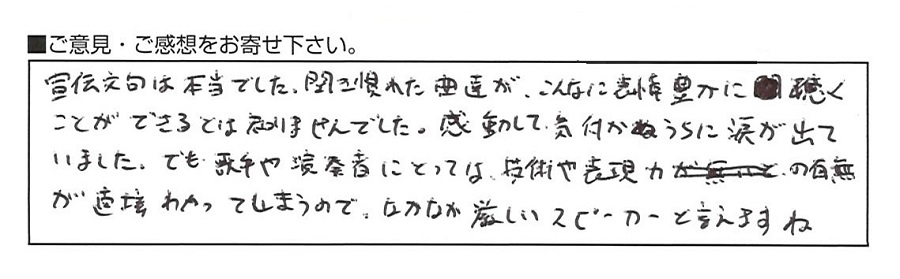 ■ご意見・ご感想をお寄せ下さい。
宣伝文句は本当でした。聞き慣れた曲達が、こんなに表情豊かに聴く
ことができるとは思いませんでした。感動して気付かぬうちに涙が出て
いました。でも歌手や演奏者にとっては、技術や表現力の有無
が直接わかってしまうので、なかなか厳しいスピーカーと言えますね